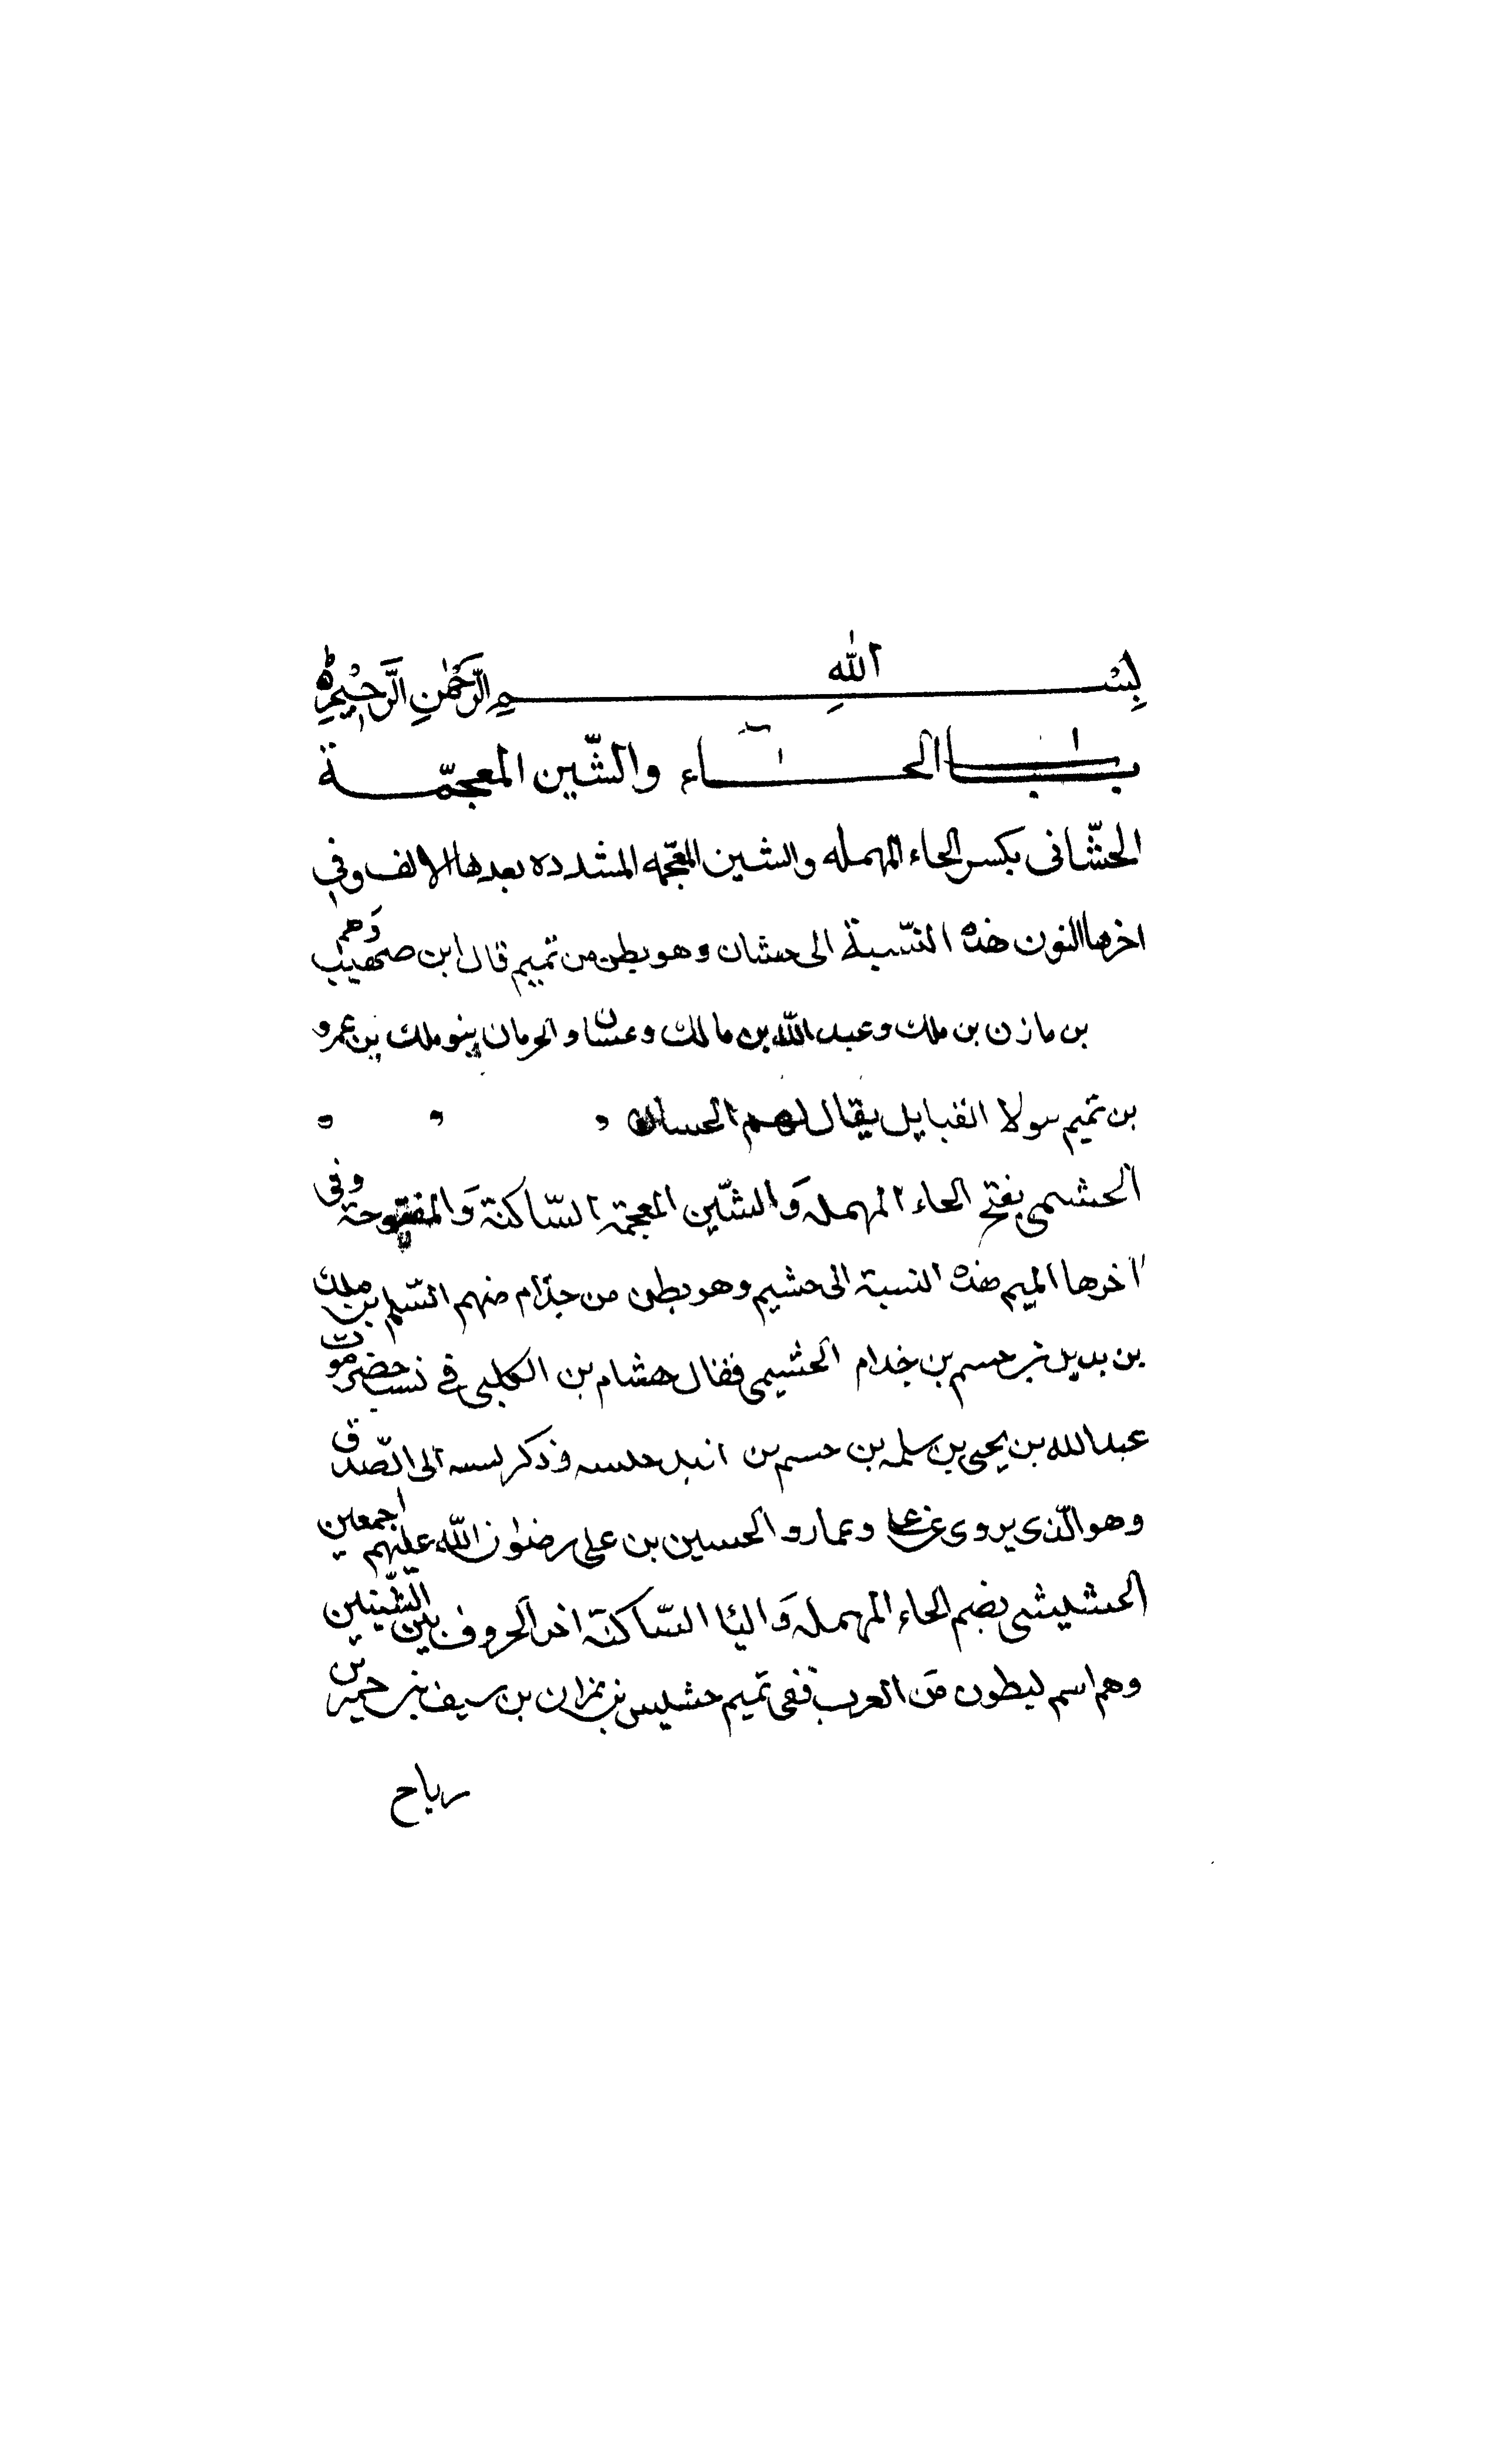 بِسْمِ اللهِ الرَّحْمٰنِ الرَّحِيْمِ
باب الحاء والشّين المعجمّة
الحشّانى بكسر الحاء المهمله والشين المعجمه المشدده بعدها الالف وفي
اخرها النون هذه النسّبة الى حشان وهو بطن من تميم قال ابن صهيب وَهم
بن مازن بن ملك وعبد الله بن مالك وعسان والحرمان بنو ملك بن عمرو
بن تميم سولا القبايل يقال لهم الحسان
الحشمى بفتح الحاء المهملة وَالشّين المعجمة السّاكنة وَالمفتوحة وفى
اخرها الميم هذه النسبة الى حشيم وهو بطن من جذام منهم السلم بن ملك
بن بديل بن حسم بن خدام الحشيمى فقال هشام بن الكلبى فى نسب حضرموت
عبد الله بن يحيى بن سلمه بن حسم بن وذكر الى الصّدق
وهو الّذى يروى وعمارو الحسين بن على رضوان الله عليهم اجمعين
الحشيشى بضم الحاء المهملة وَاليا السّاكنة اخر الحروف بين الشّينين
وهم اسم لبطون من العرب ففى تميم حشيس بن نمران بن سيف بن حميرى
رباح